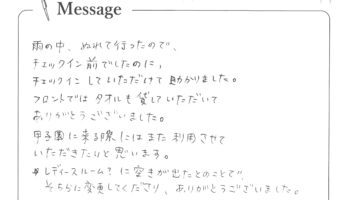 Message
雨の中、ぬれて行ったので、
チェックイン前でしたのに、
チェックインしていただけて助かりました。
フロントではタオルも貸していただいて
ありがとうございました。
甲子園に来る際にはまた利用させて
いただきたいと思います。
#レディースルーム?に空きが出たとのことで、
そちらに変更してくださり、ありがとうございました。